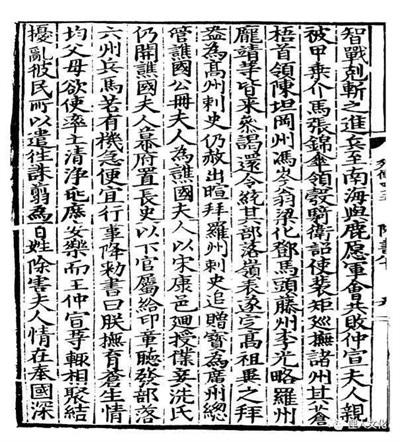 智戰剋斬之進兵至南海與鹿愿軍會共敗仲宣夫人親
被甲乘介馬張錦傘領彀騎衛詔使裴矩巡撫諸州其蒼
梧首領陳坦岡州馮岑翁梁化鄧馬頭藤州李光略羅州
龐靖等皆來參謁還令統其部落嶺表遂定高祖異之拜
盎為髙州刺史仍赦出暄拜羅州刺史追贈寶為廣州總
管譙國公冊夫人為譙國夫人以宋康邑迴授僕妾洗氏
仍開譙國夫人幕府置長史以下官屬給印章聽發部落
六州兵馬若有機急便宜行事降勑書曰朕撫育蒼生情
均父母欲使率土清淨兆庶安樂而王仲宣等輙相聚結
擾亂彼民所以遣往誅翦為百姓除害夫人情在奉國深